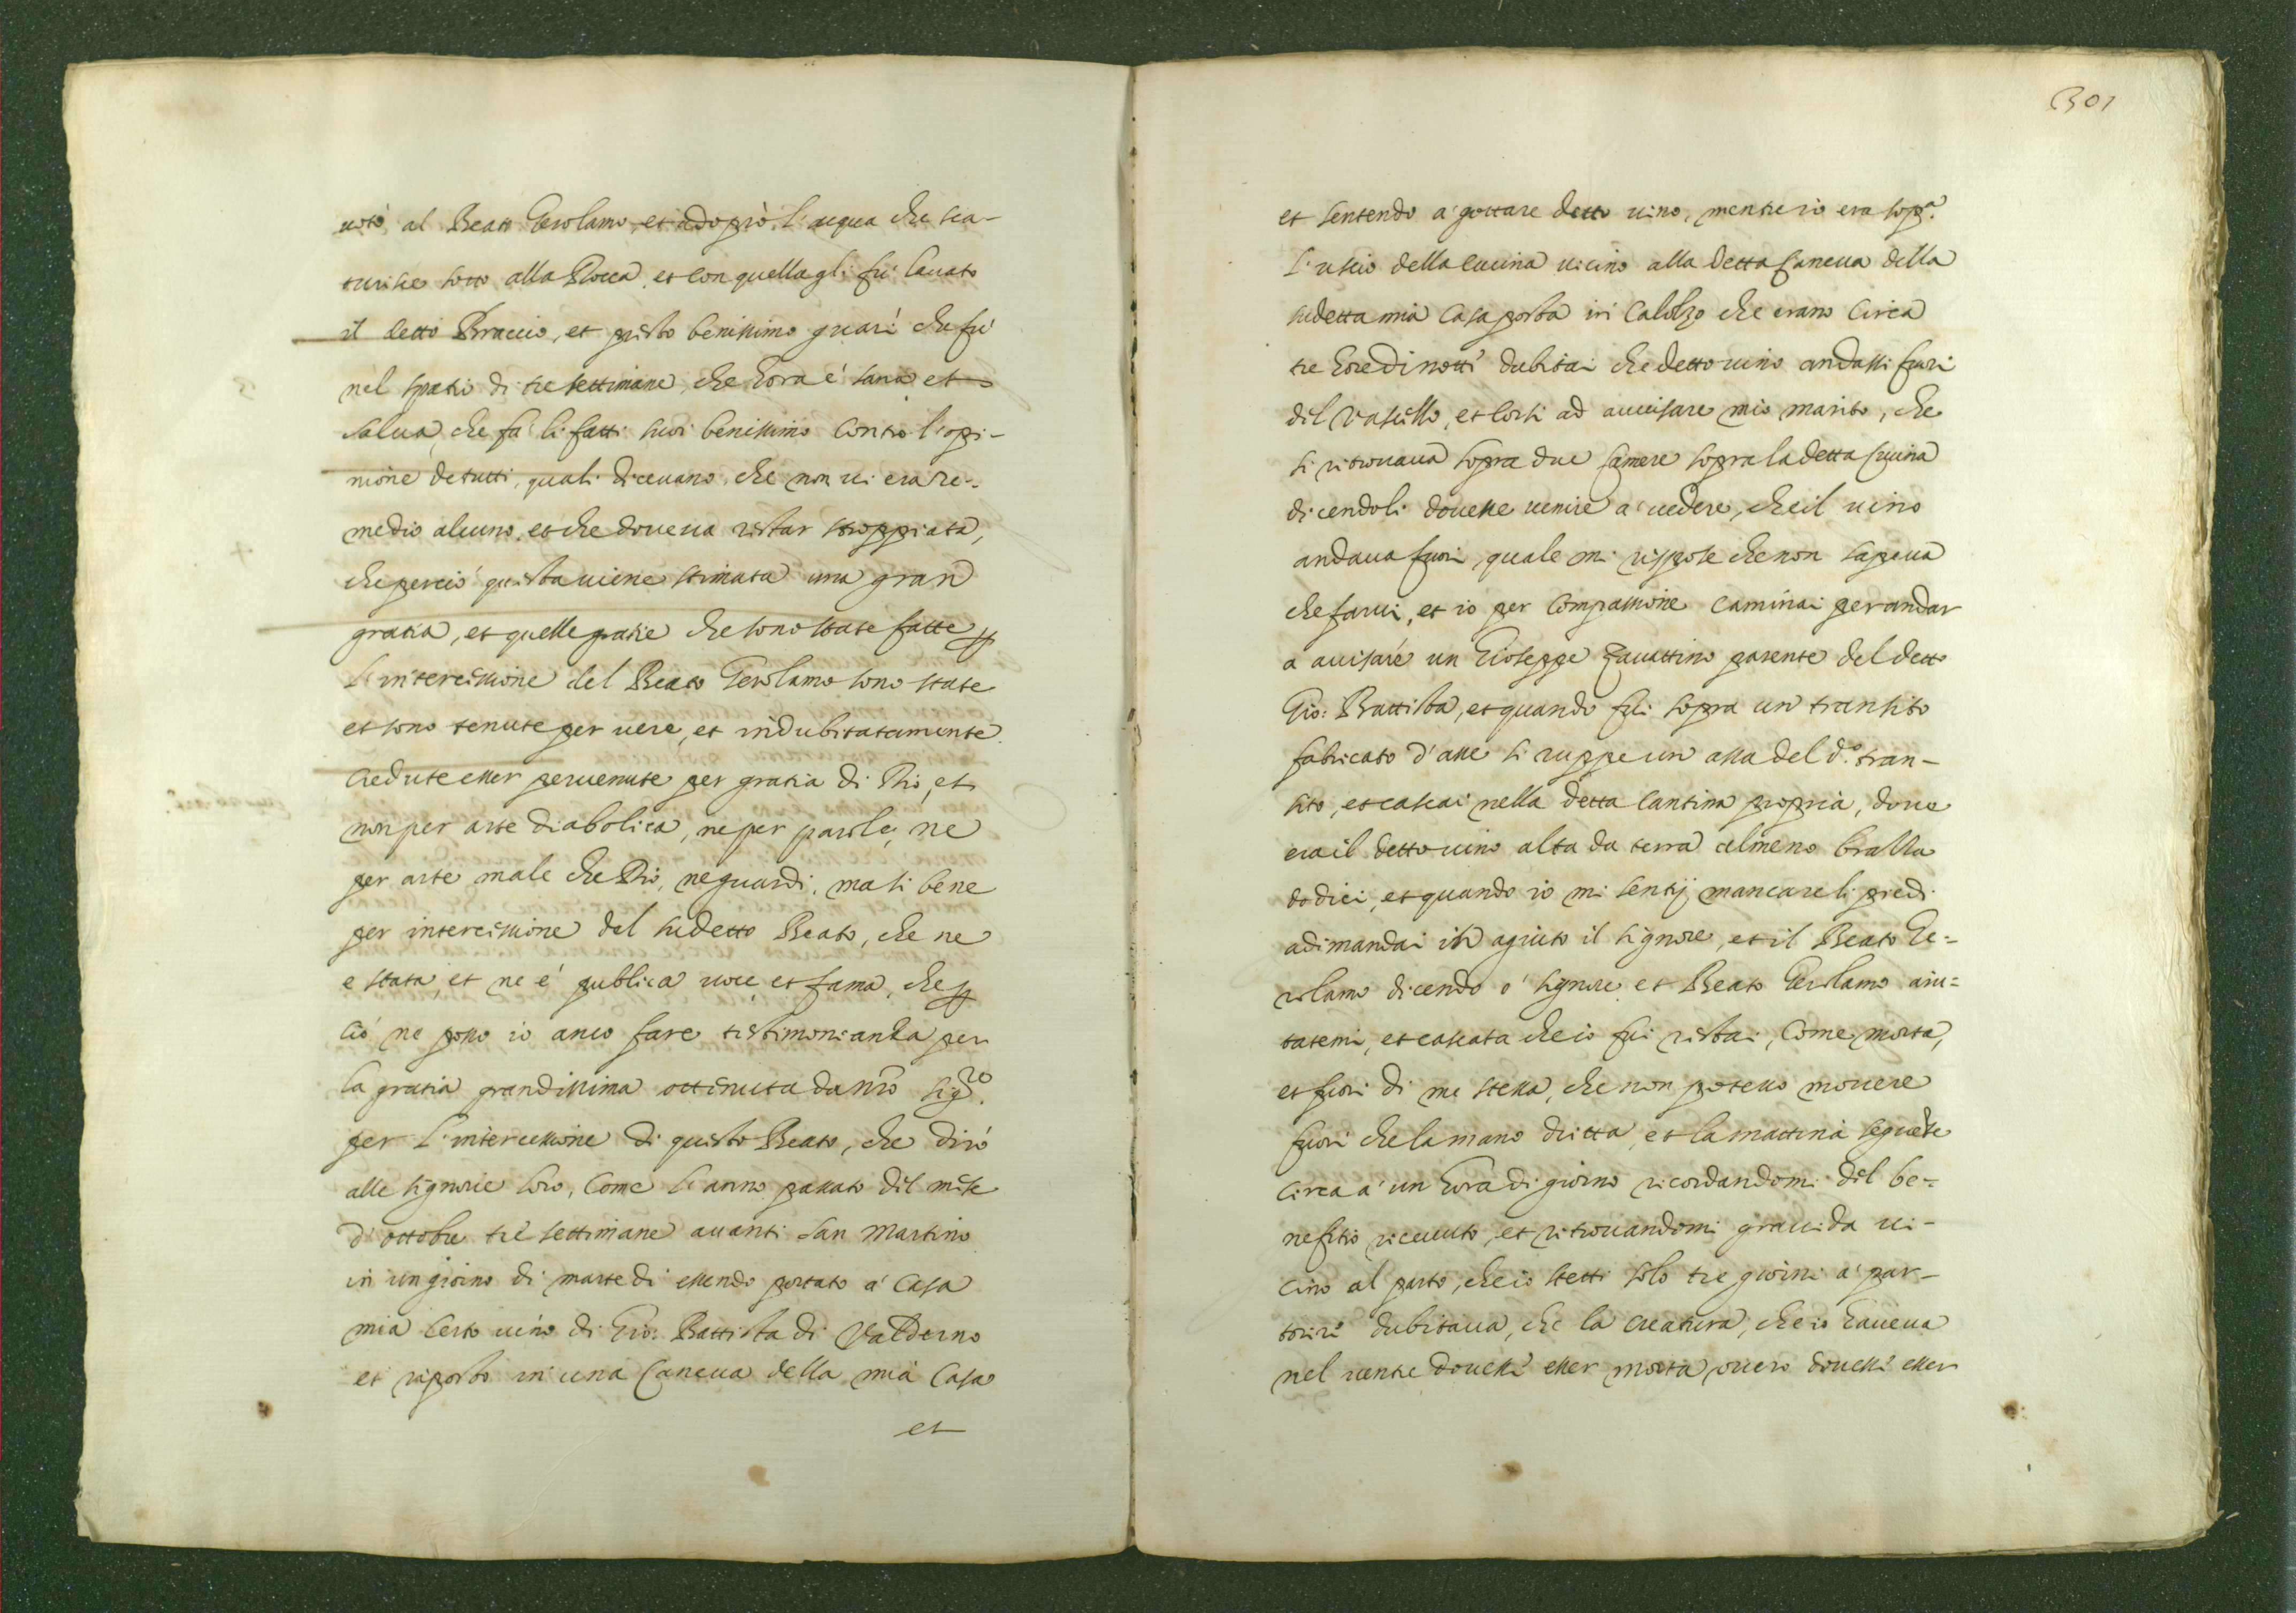 uotò al Beato Gerolamo, et adoprò l'acqua che sca-
turisce sotto alla Rocca, et con quella gli fù lauato
il detto Braccio, et presto benissimo guarì che fù
nel spatio di tre settimane, che hora è sana, et
salua, che fà li fatti suoi benissimo contro l'opi-
nione de tutti, quali diceuano, che non ui era re-
medio alcuno, et che doueua restar stroppiata,
che perciò questa uiene stimata una gran
gratia, et quelle gratie che sono state fatte p
l'intercissione del Beato Gerolamo sono state
et sono tenute per uere, et indubitatamente
credute esser peruenute per gratia di Dio, et
non per arte diabolica, ne per parole, ne
per arte male che Dio, ne guardi, ma si bene
per intercissione del sudetto Beato, che ne
e stata, et ne è publica uoce et fama, che p
ciò ne posso io anco fare testimonianza per
la gratia grandissima ottenuta da nro sigre.
per l'intercessione di questo Beato, che dirò
alle signorie loro, Come l'anno passato del mese
d'ottobre trè settimane auanti San Martino
in un giorno di martedi essendo portato a' casa
mia certo uino di Gio: Battista di Valderno
et riposto in una Caneua della mia Casa
et
301
et sentendo a' gottare detto uino, mentre io era sopa.
l'uscio della cucina uicino alla detta Caneua della
sudetta mia Casa posta in Calolzo che erano circa
tre hore di notte dubitai che detto uino andasse fuori
del vassello, et corsi ad auuisare mio marito, che
si ritrouaua sopra due Camere sopra la detta cucina
dicendoli douesse uenire a' uedere, che il uino
andaua fuori, quale mi rispose che non sapeua
che farui, et io per compassione caminai per andar
a auisare un Gioseppe Zauattino parente del detto
Gio: Battista, et quando fui sopra un transito
fabricato d'asse si ruppe un assa del d.o tran-
sito, et cascai nella detta Cantina propria, doue
era il detto uino alta da terra almeno brassa
dodici, et quando io mi sentij mancare li piedi
adimandai in agiuto il signore, et il Beato Ge-
rolamo dicendo o' signore et Beato Gerolamo aiu-
tatemi, et cascata che io fui restai, Come morta,
et fuori di me stessa, che non poteuo mouere
fuori che la mano dritta, et la mattina seguēte
circa a' un hora di giorno ricordandomi del be-
nefitio riceuuto, et ritrouandomi grauida ui-
cino al parto, che io stetti solo tre giorni a' par-
torire dubitaua, che la creatura, che io haueua
nel uentre douesse esser morta, ouero douesse esser